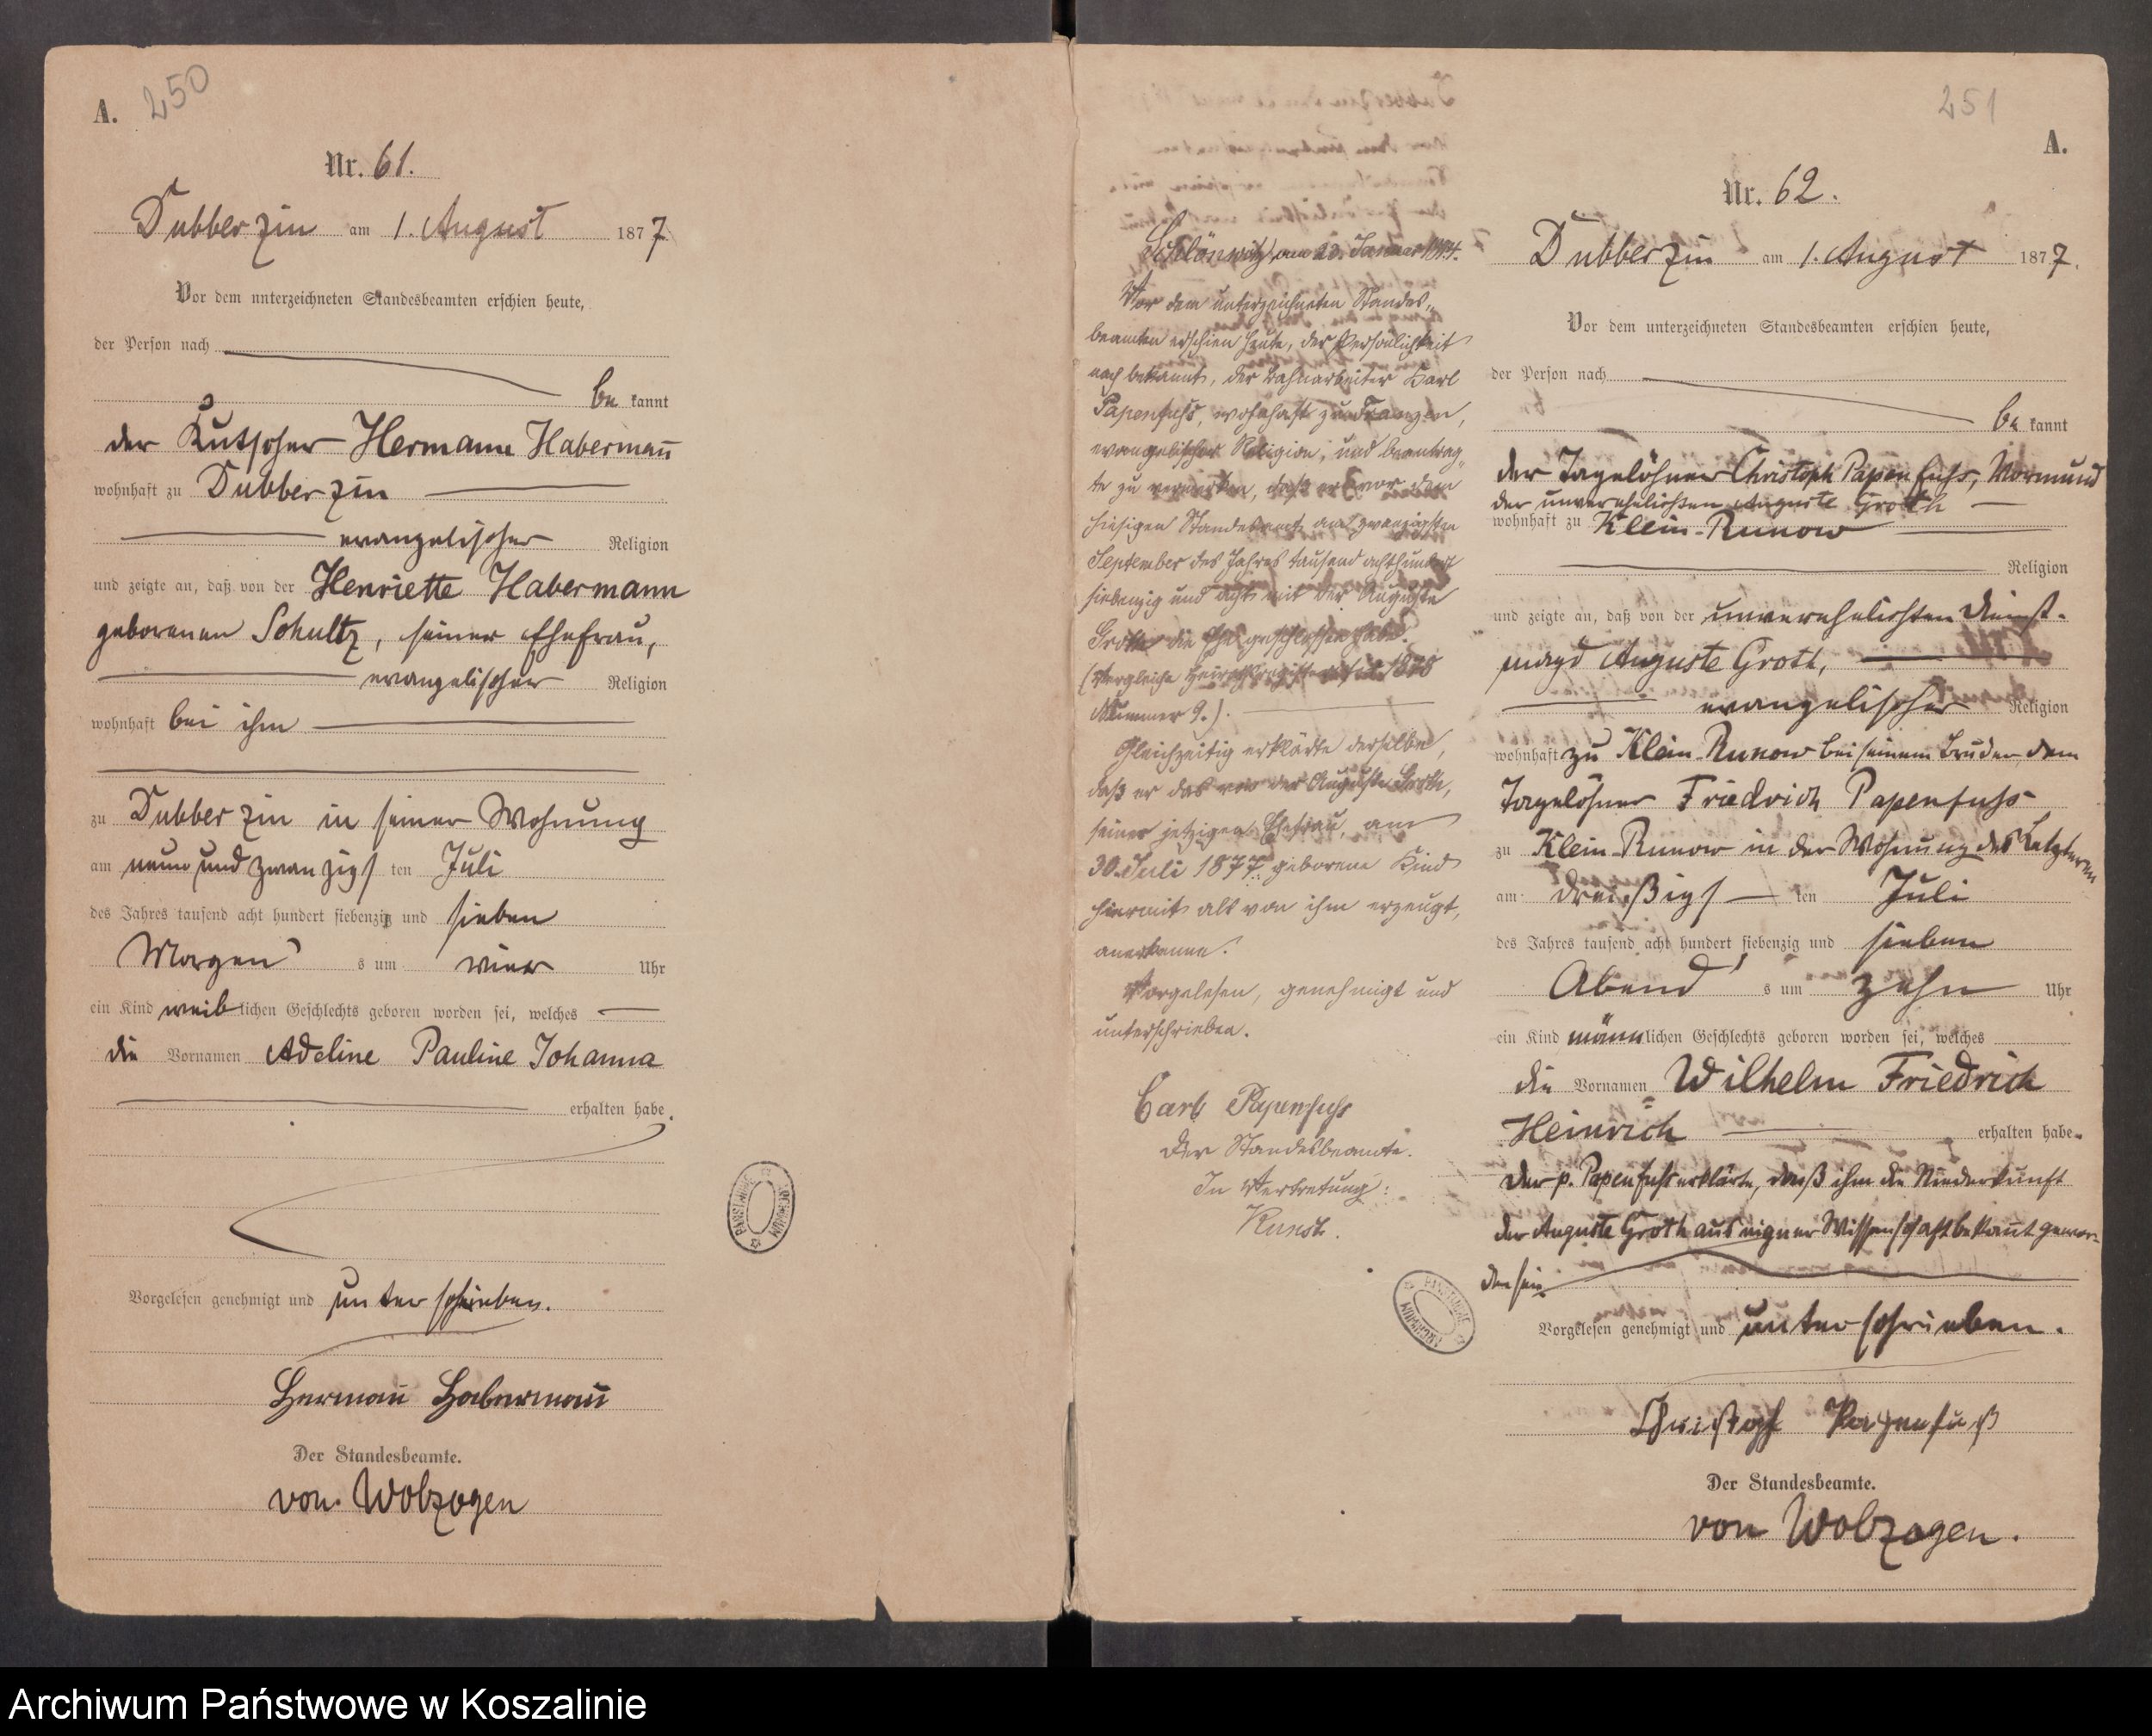 A. 250
Nr. 61.
Dubberzin am 1. August 1877.
Vor dem unterzeichneten Standesbeamten erschien heute,
der Person nach
be kannt
der Kutscher Hermann Habermañ
wohnhaft zu Dubberzin
evangelischer Religion
und zeigte an, daß von der Henriette Habermann
geborenen Schultz, seiner Ehefrau,
evangelischer Religion
wohnhaft bei ihm
zu Dubberzin in seiner Wohnung
am neun und zwanzigs ten Juli
des Jahres tausend acht hundert siebenzig und sieben
Morgen s um vier Uhr
ein Kind weiblichen Geschlechts geboren worden sei, welches
die Vornamen Adeline Pauline Johanna
erhalten habe.
Vorgelesen genehmigt und unterschrieben.
Hermañ Habermañ
Der Standesbeamte.
von Wolzogen
Schlönwitz, am 23. Januar
Vor dem unterzeichneten Standes-
beamten erschien heute, der Persönlichkeit
nach bekannt, der Bahnarbeiter Karl
Papenfuhs, wohnhaft zu Drangen,
evangelischer Religion, und beantrag-
te zu vermerken, daß er vor dem
hiesigen Standesamt am zwanzigsten
September des Jahres tausend achthundert
siebenzig und acht mit der Auguste
Groth die Ehe geschlossen habe.
(Vergleiche Heiratsregister 1878
Nummer 9.).
Gleichzeitig erklärte derselbe,
daß er das von der Auguste Groth,
seiner jetzigen Ehefrau, am
30. Juli 1877 geborene Kind
hiermit als von ihm erzeugt,
anerkenne.
Vorgelesen, genehmigt und
unterschrieben.
Carl Papenfuhs
Der Standesbeamte.
In Vertretung:
Kunst.
251
A.
Nr. 62.
Dubberzin am 1. August 1877.
Vor dem unterzeichneten Standesbeamten erschien heute,
der Person nach
be kannt
der Tagelöhner Christoph Papenfuhs, Vormund
der unverehelichten Auguste Groth
wohnhaft zu Klein-Runow
Religion
und zeigte an, daß von der unverehelichten Dienst-
magd Auguste Groth,
evangelischer Religion
wohnhaft zu Klein Runow bei seinem Bruder, dem
Tagelöhner Friedrich Papenfuhs
zu Klein Runow in der Wohnung des Letzteren
am dreißigs ten Juli
des Jahres tausend acht hundert siebenzig und sieben
Abend s um zehn Uhr
ein Kind männlichen Geschlechts geboren worden sei, welches
die Vornamen Wilhelm Friedrich
Heinrich erhalten habe.
Der p. Papenfuhs erklärte, daß ihm die Niederkunft
der Auguste Groth aus eigner Wissenschaft bekañt gewor-
den sei.
Vorgelesen genehmigt und unterschrieben.
Christoph Papenfuß
Der Standesbeamte.
von Wolzogen.
ARCHIWUM PAŃSTWOWE
ARCHIWUM PAŃSTWOWE
Archiwum Państwowe w Koszalinie